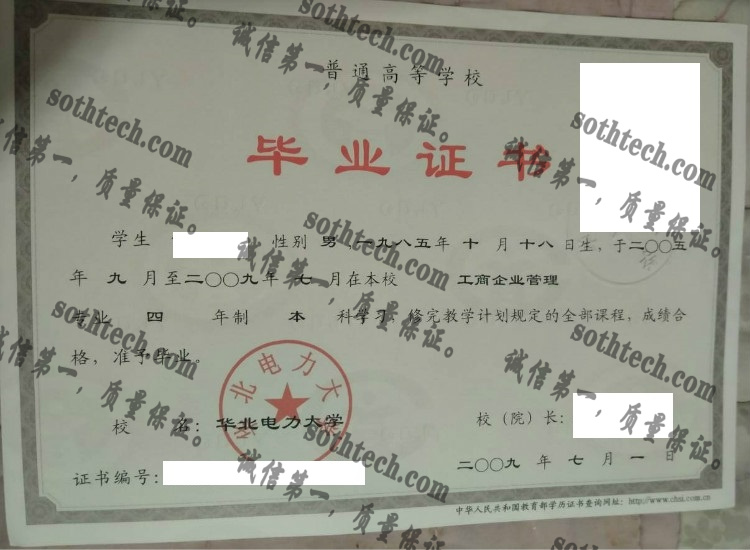 普通高等学校
毕业证书
学生 性别 男，一九八五年 十 月 十八 日生，于二〇〇五
年 九 月至二〇〇九年 七 月在本校 工商企业管理
专业 四 年制 本 科学习，修完教学计划规定的全部课程，成绩合
格，准予毕业。
华北电力大学
校 名：华北电力大学
校（院）长：
证书编号：
二〇〇九 年 七 月 一 日
中华人民共和国教育部学历证书查询网址：http://www.chsi.com.cn
sothtech.com
诚信第一，质量保证。
sothtech.com
诚信第一，质量保证。
sothtech.com
诚信第一，质量保证。
sothtech.com
诚信第一，质量保证。
sothtech.com
诚信第一，质量保证。
sothtech.com
诚信第一，质量保证。
sothtech.com
诚信第一，质量保证。
sothtech.com
诚信第一，质量保证。